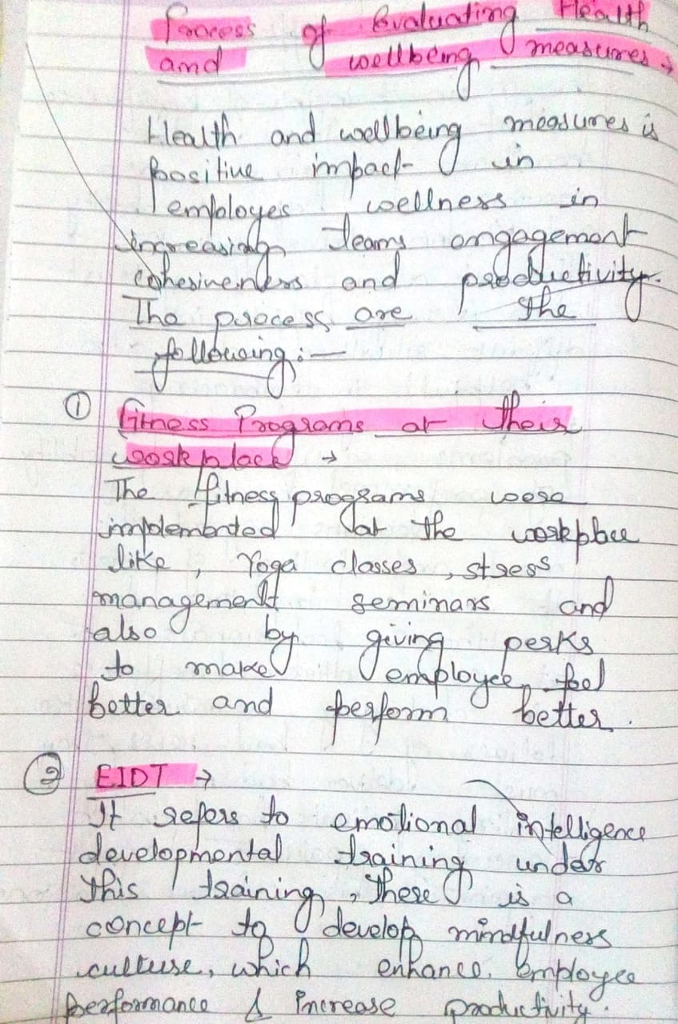 Process of Evaluating Health
and wellbeing measures →
Health and wellbeing measures is
positive impact in
employes wellness in
increasing teams engagement
cohesiveness and productivity.
The process are the
following:—
① Fitness Programs at their
workplace →
The fitness programs were
implemented at the workplace
like, Yoga classes, stress
management seminars and
also by giving perks
to make employee feel
better and perform better.
② EIDT →
It refers to emotional intelligence
developmental training under
this training, there is a
concept to develop mindfulness
culture, which enhance employee
performance & increase productivity.